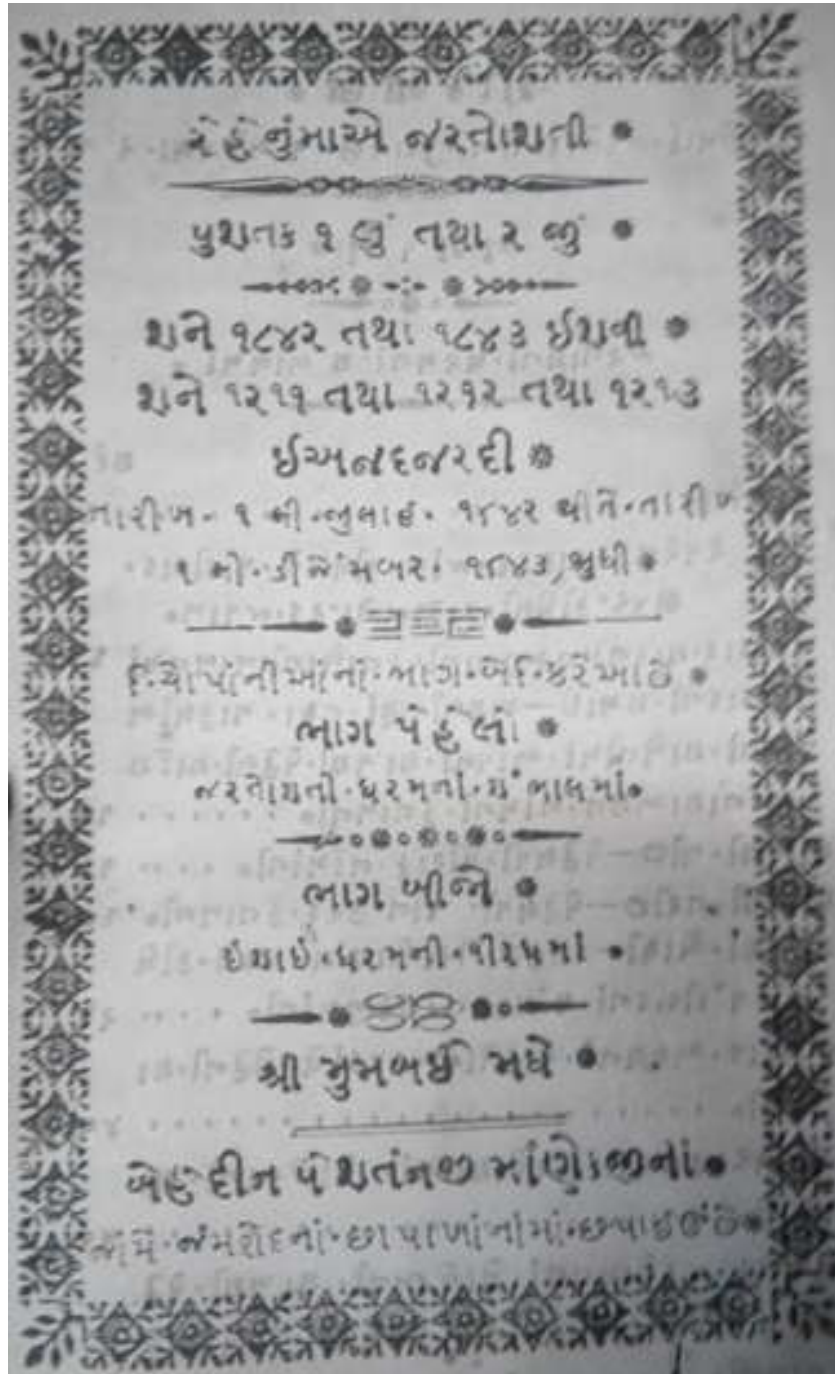 રેહેનુંમાએ જરતોશતી
પુશતક ૧ લું તથા ૨ જું
શને ૧૮૪૨ તથા ૧૮૪૩ ઈશવી
શને ૧૨૧૧ તથા ૧૨૧૨ તથા ૧૨૧૩
ઈઅજદજરદી
તારીખ ૧ લી જુલાઈ ૧૮૪૨ થીતે તારીખ
૧ લી ડીશંમબર ૧૮૪૩ શુધી
ચોપાંનીઆંનો ભાગ બે
ભાગ પેહેલો
જરતોશતી ધરમનાં શંભાલમાં
ભાગ બીજો
ઈશાઈ ધરમની વીરધમાં
શ્રી મુમબઈ મધે
બેહદીન પેશતંનજી માંણેકજીનાં
જાંમે જંમશેદનાં છાપાખાંનાંમાં છપાઈઉંછે